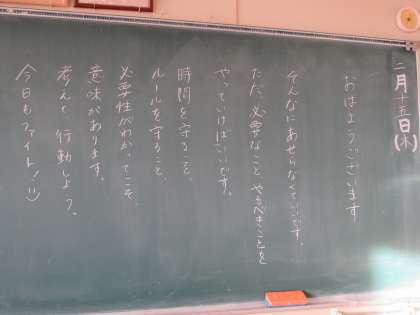 二月十五日(木)
おはようございます
そんなにあせらなくていいです。
ただ、必要なこと やるべきことを
やっていけばいいです。
時間を守ること、
ルールを守ること、
必要性がわかってこそ
意味があります。
考えて行動しよう。
今日もファイト!!